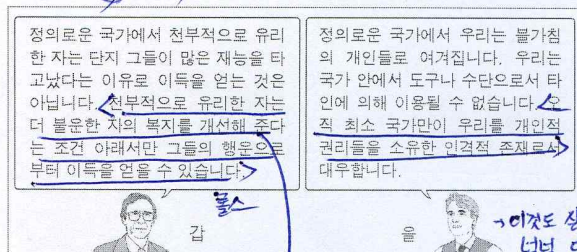 정의로운 국가에서 천부적으로 유리
한 자는 단지 그들이 많은 재능을 타
고났다는 이유로 이득을 얻는 것은
아닙니다. 천부적으로 유리한 자는
더 불운한 자의 복지를 개선해 준다
는 조건 아래서만 그들의 행운으로
부터 이득을 얻을 수 있습니다.
롤스
갑
정의로운 국가에서 우리는 불가침
의 개인들로 여겨집니다. 우리는
국가 안에서 도구나 수단으로서 타
인에 의해 이용될 수 없습니다. 오
직 최소 국가만이 우리를 개인적
권리들을 소유한 인격적 존재로서
대우합니다.
을
이것도